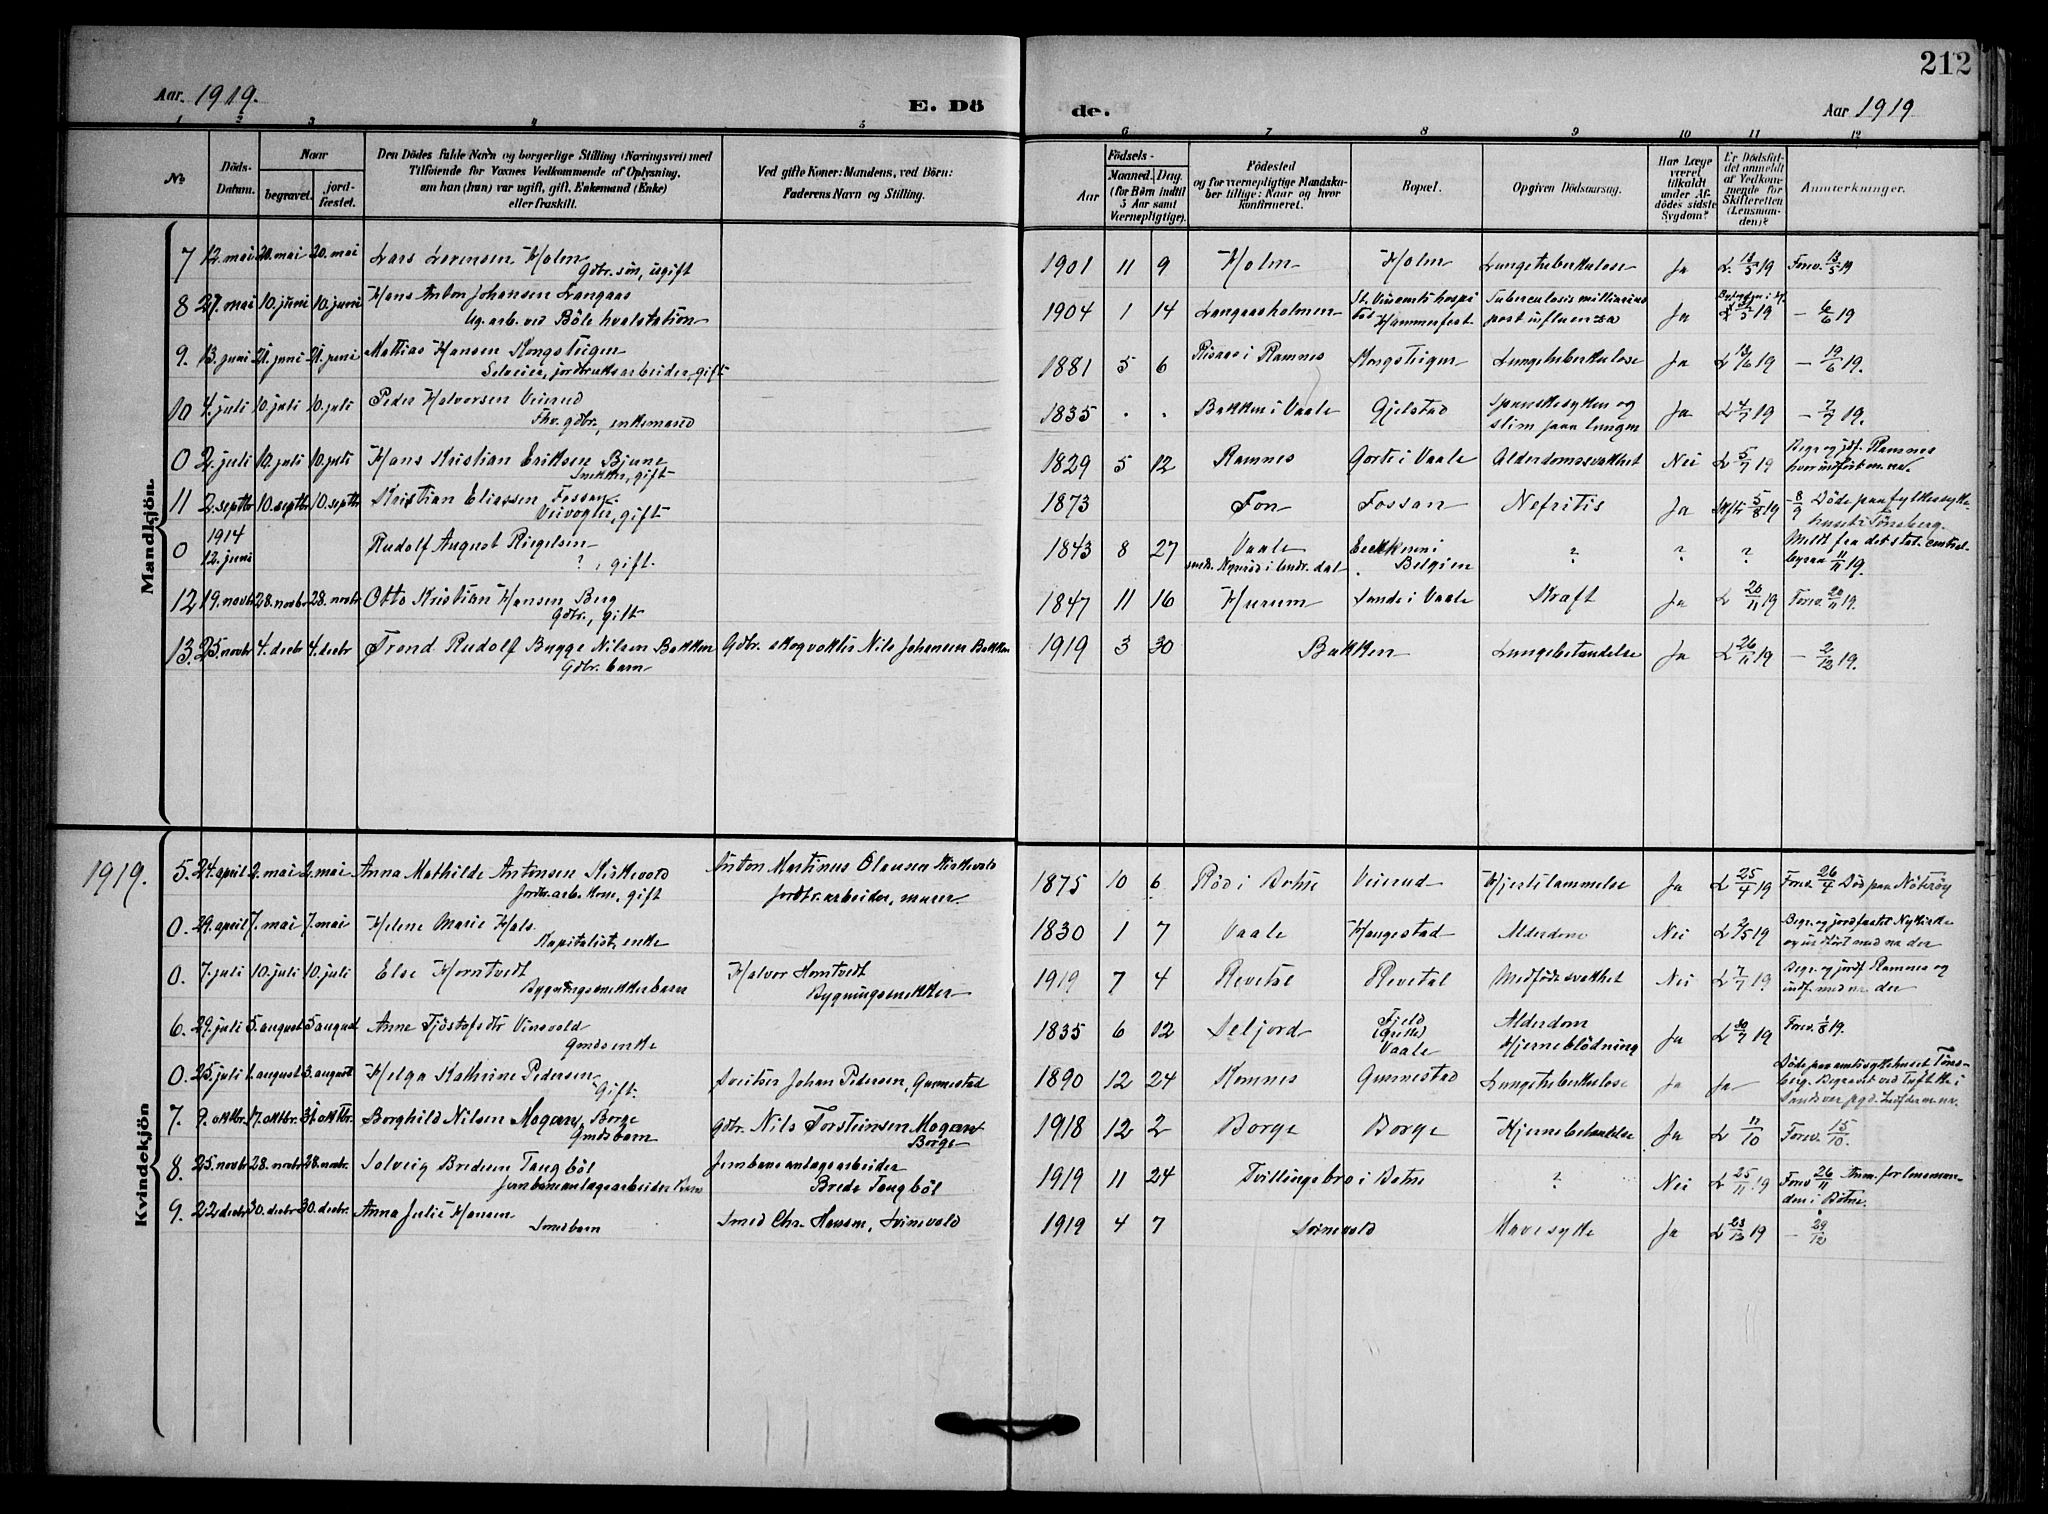 212
Aar. 1919.
E. Dö
de.
Aar 1919
1 2 3 4 5 6 7 8 9 10 11 12
No
Döds-Datum.
Naar
begravet.
jord-fæstet.
Den Dödes fulde Navn og borgerlige Stilling (Næringsvei) med
Tilföiende for Voxnes Vedkommende af Oplysning,
om han (hun) var ugift, gift, Enkemand (Enke)
eller fraskilt.
Ved gifte Koner: Mandens, ved Börn:
Faderens Navn og Stilling.
Födsels-
Aar
Maaned. Dag.
(for Börn indtil
5 Aar samt
Værnepligtige).
Födested
og for værnepligtige Mandska-
ber tillige: Naar og hvor
konfirmeret.
Bopæl.
Opgiven Dödsaarsag.
Har Læge
været
tilkaldt
under Af-
dödes sidste
Sygdom?
Er Dödsfal-
det anmeldt
af Vedkom-
mende for
Skifteretten
(Lensman-
den)?
Anmærkninger.
Mandkjön.
7 12. mai 20. mai 20. mai Lars Lorensen Holm 1901 11 9 Holm Holm Lungetuberkulose Ja L. 13/5 19 Forev. 13/5 19
Gdbr. søn, ugift
8 27. mai 10. juni 10. juni Hans Anton Johansen Langaas 1904 1 14 Langaasholmen St. Vincents hospi Tuberculosis milliaris Ja
Ug. arb. ved Böle hvalstation tal Hammerfest post influenza 19 – 6/6 19
9. 13. juni 21. juni 21. juni Mattias Hansen Kongsteigen 1881 5 6 i Ramnes Kongsteigen Lungetuberkulose Ja L 13/6 19 – 19/6 19.
Selveier, jordbruksarbeider, gift
10 4. juli 10. juli 10. juli Peder Halvorsen Veierud 1835 . . Bakken i Vaale Gjelstad Spanskesyken og Ja L 4/7 19 – 7/7 19.
Fhv. gdbr., enkemand slim paa lungen
0 2. juli 10. juli 10. juli Hans Kristian Eriksen Bjune 1829 5 12 Ramnes Gorte i Vaale Alderdomssvakhet Nei L 5/7 19 Begr. og jdf. Ramnes
Snekker, gift
11 2. septbr 10. septbr 10. septbr Kristian Eliassen Fossan. 1873 Fon Fossan Nefritis Ja 5/8 19 – 8/9 Döde paa fylkessyke-
Veivogter, gift huset i Tönsberg.
0 1914 12. juni Rudolf August Riegelsen 1843 8 27 Vaale i ? ? ? Meldt fra det stat. central-
? , gift. Belgien byraa 11/11 19.
12 19. novbr 28. novbr 28. novbr Otto Kristian Hansen Berg 1847 11 16 Hurum Sande i Vaale Kræft Ja L 20/11 19 Forev. 20/11 19.
Gdbr., gift
13. 25. novbr 4. decbr 4. decbr Trond Rudolf Bugge Nilsen Bakken Gdbr. skogvokter Nils Johansen Bakken 1919 3 30 Bakken Lungebetændelse Ja L 26/11 19 – 2/12 19.
Gdbr. barn
Kvindekjön
1919.
5. 24. april 2. mai 2. mai Anna Mathilde Antonsen Kirkevold Anton Martinus Olausen Kirkevold 1875 10 6 Röd i Botne Veierud Hjertelammelse Ja L 25/4 19 Forev. 26/4 Död paa Nöteröy
Jordbr. arb. kone, gift Jordbr. arbeider, murer.
0. 29. april 7. mai 7. mai Helene Marie Hals 1830 1 7 Vaale Haugestad Alderdom Nei L 2/5 19 Begr. og jordfæstet Nykirke
Kapitalist, enke og indfört med no der
0. 7. juli 10. juli 10. juli Else Horntvedt Halvor Horntvedt 1919 7 4 Revetal Revetal Medfödt svakhet Nei L 7/7 19 Begr. og jordf. Ramnes og
Bygningssnekkerbarn Bygningssnekker indf. med no der
6. 29. juli 5. august 5. august Anne Tjöstofsdtr Vinsvold 1835 6 02 Seljord Fjeld Alderdom Ja L 30/7 19 Forev. 1/8 19.
Gmdsenke Vaale Hjerneblödning
0. 25. juli 1. august 3. august Helga Kathrine Pedersen Sveitser Johan Pedersen, Gunnestad 1890 12 24 Komnes Gunnestad Lungetuberkulose Ja Ja Döde paa amtssykehuset Töns-
Gift. berg. Begravet ved Tuft kk i
Sandsver
7. 9. oktbr. 17. oktbr. 31. oktbr. Borghild Nilsen Mogan, Borge Gdbr. Nils Torsteinsen Mogan 1918 12 2 Borge Borge Hjernebetændelse Ja L 11/10 Forev. 15/10.
Gmdsbarn Borge
8. 25. novbr 28. novbr 28. novbr. Solveig Bredesen Taugböl Jernbaneanlægsarbeider 1919 11 24 Tvillingsbro i Botne ? Nei L 25/11 19 Forev 26/11 Anm. for lensman-
Jernbaneanlægsarbeider Barn Brede Taugböl den i Botne.
9. 22 decbr 30. decbr. 30. decbr. Anna Julie Hansen Smed Chr. Hansen, Svinevold 1919 4 7 Svinevold Mavesyke Ja L 23/12 19 – 29/12
Smedbarn